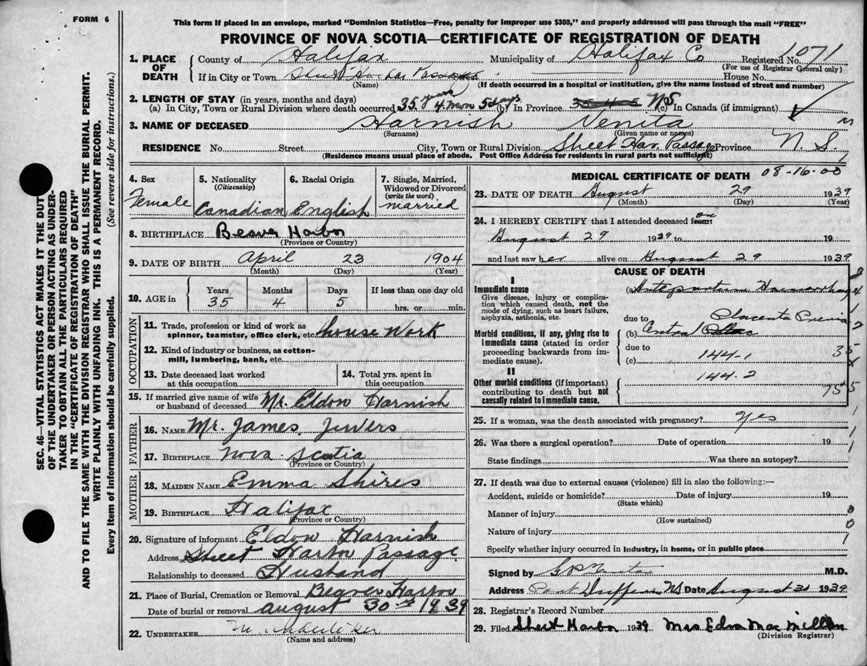 FORM 6
This form if placed in an envelope, marked "Dominion Statistics—Free, penalty for improper use $300," and properly addressed will pass through the mail "FREE"
PROVINCE OF NOVA SCOTIA—CERTIFICATE OF REGISTRATION OF DEATH
1. PLACE OF DEATH
County of Halifax Municipality of Halifax Co Registered No. 1071
(For use of Registrar General only)
If in City or Town Sheet Harbor Passage House No.
(Name) (If death occurred in a hospital or institution, give the name instead of street and number)
2. LENGTH OF STAY (in years, months and days)
(a) In City, Town or Rural Division where death occurred 35 years 4 mon 5 days (b) In Province NS (c) In Canada (if immigrant)
3. NAME OF DECEASED Harnish Venita
(Surname) (Given name or names)
RESIDENCE No. Street City, Town or Rural Division Sheet Har. Passage Province N. S.
(Residence means usual place of abode. Post Office Address for residents in rural parts not sufficient)
4. Sex
Female
5. Nationality
(Citizenship)
Canadian
6. Racial Origin
English
7. Single, Married, Widowed or Divorced
(write the word)
married
8. BIRTHPLACE Beaver Harbor
(Province or Country)
9. DATE OF BIRTH April 23 1904
(Month) (Day) (Year)
10. AGE in
Years Months Days If less than one day old
35 4 5 hrs. or min.
OCCUPATION
11. Trade, profession or kind of work as spinner, teamster, office clerk, etc. house work
12. Kind of industry or business, as cotton-mill, lumbering, bank, etc.
13. Date deceased last worked at this occupation
14. Total yrs. spent in this occupation
15. If married give name of wife or husband of deceased Mr. Eldon Harnish
FATHER
16. NAME Mr. James, Jewers
17. BIRTHPLACE Nova Scotia
(Province or Country)
MOTHER
18. MAIDEN NAME Emma Shires
19. BIRTHPLACE Halifax
(Province or Country)
20. Signature of informant Eldon Harnish
Address Sheet Harbor Passage
Relationship to deceased Husband
21. Place of Burial, Cremation or Removal Beaver Harbor
Date of burial or removal august 30th 1939
22. UNDERTAKER
(Name and address)
MEDICAL CERTIFICATE OF DEATH 08-16-00
23. DATE OF DEATH August 29 1939
(Month) (Day) (Year)
24. I HEREBY CERTIFY that I attended deceased on
August 29 1939 to 19
and last saw her alive on August 29 1939
CAUSE OF DEATH
I
Immediate cause
Give disease, injury or complication which caused death, not the mode of dying, such as heart failure, asphyxia, asthenia, etc.
(a) Antepartum Haemorrhage
due to Placenta Previa
Morbid conditions, if any, giving rise to immediate cause (stated in order proceeding backwards from immediate cause).
(b) Central
due to
(c) 144-1
144-2
II
Other morbid conditions (if important) contributing to death but not causally related to immediate cause.
25. If a woman, was the death associated with pregnancy? Yes
26. Was there a surgical operation? Date of operation 19
State findings Was there an autopsy?
27. If death was due to external causes (violence) fill in also the following:—
Accident, suicide or homicide? Date of injury 19
(State which)
Manner of injury
(How sustained)
Nature of injury
Specify whether injury occurred in industry, in home, or in public place
Signed by M.D.
Address Port Dufferin NS Date August 31 1939
28. Registrar's Record Number
29. Filed Sheet Harbor 1939 Mrs Edna MacMillan
(Division Registrar)
SEC. 46—VITAL STATISTICS ACT MAKES IT THE DUTY
OF THE UNDERTAKER OR PERSON ACTING AS UNDER-
TAKER TO OBTAIN ALL THE PARTICULARS REQUIRED
IN THE "CERTIFICATE OF REGISTRATION OF DEATH"
AND TO FILE THE SAME WITH THE DIVISION REGISTRAR WHO SHALL ISSUE THE BURIAL PERMIT.
WRITE PLAINLY WITH UNFADING INK. THIS IS A PERMANENT RECORD.
Every item of information should be carefully supplied. (See reverse side for instructions.)